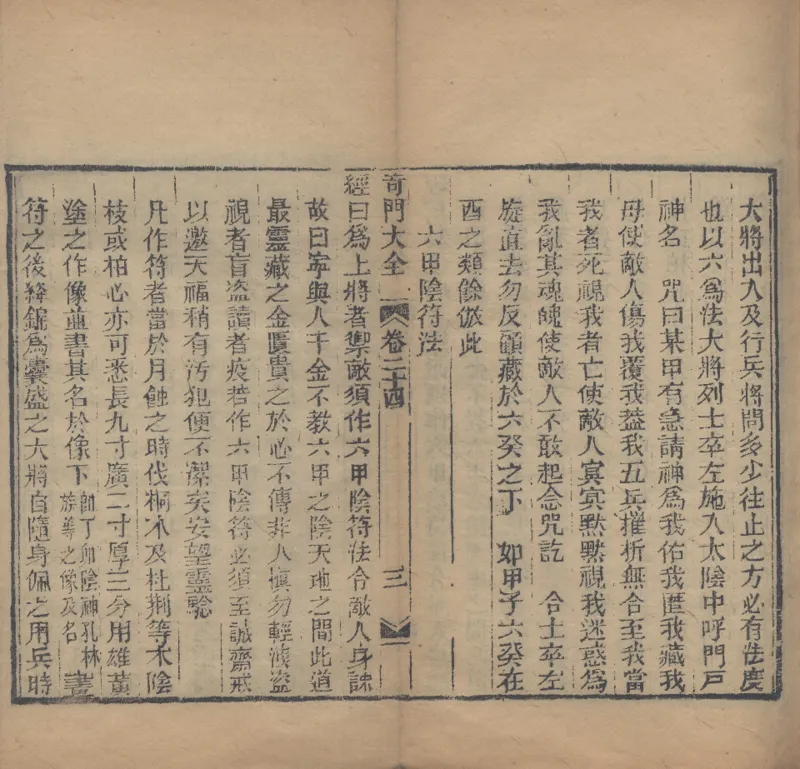 大將出入及行兵將問多少往止之方必有法度
也以六爲法大將列士卒左施入太陰中呼門戸
神名　咒曰某甲有急請神爲我佑我匿我藏我
母使敵人傷我覆我葢我五兵摧折無合至我當
我者死視我者亡使敵人㝠㝠黙黙視我迷惑爲
我亂其魂魄使敵人不敢起念咒訖　合士卒左
旋直去勿反顧藏於六癸之下　如甲子六癸在
酉之類餘倣此
六甲陰符法
奇門大全　卷二十四　三
經曰爲上將者禦敵須作六甲陰符法令敵人身誅
故曰寜與人千金不教六甲之陰天地之間此道
最靈藏之金匱貴之於心不傳非人愼勿輕淺盗
視者盲盗讀者疫若作六甲陰符必須至誠齋戒
以邀天福稍有汚犯便不潔矣安望靈騐
凡作符者當於月蝕之時伐桐木及杜荆等木陰
枝或柏心亦可悉長九寸廣二寸厚三分用雄黄
塗之作像並書其名於像下 卽丁卯陰神孔林族等之像及名 畫
符之後絳錦爲囊盛之大將自隨身佩之用兵時